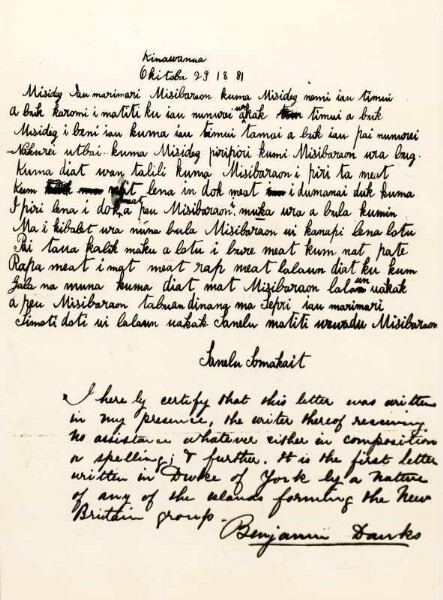 Kinawanua
Okitoba 29 1881
Misideg Iau marimari Misibaraon kuma Misideg nemi iau timui
a buk karomi i matiti ku iau nunurei uakak timui a buk
Misideg i beni iau kuma iau timui tamai a buk iau pai nunurei
Nakurei utbai kuma Misideg piripiri kumi Misibaraon ura bug
Kuma diat wan talili kuma Misibaraon i piri ta meat
Kum meat lena in dok meat i dumanai duk kuma
I piri lena i dok a meat peu Misibaraon muka ura a bula kumin
Ma i kibalet ura nuna bula Misibaraon ui kanapi lena lotu
Pai tana kalik maku a lotu i bure meat kum nat pate
Rapa meat i mat meat rap meat lalaun diat ku kum
Jala na muna kuma diat mat Misibaraon lalaun uakak
a peu Misibaraon tabuan dinang ma Sepri iau marimari
Simoti doti ui lalaun uakak Sanelu matiti wuwudu Misibaraon
Sanelu Somakait
I here by certify that this letter was written
in my presence, the writer thereof receiving
no assistance whatever either in composition
or spelling; & further. It is the first letter
written in Duke of York by a native
of any of the islands forming the New
Britain group.
Benjamin Danks